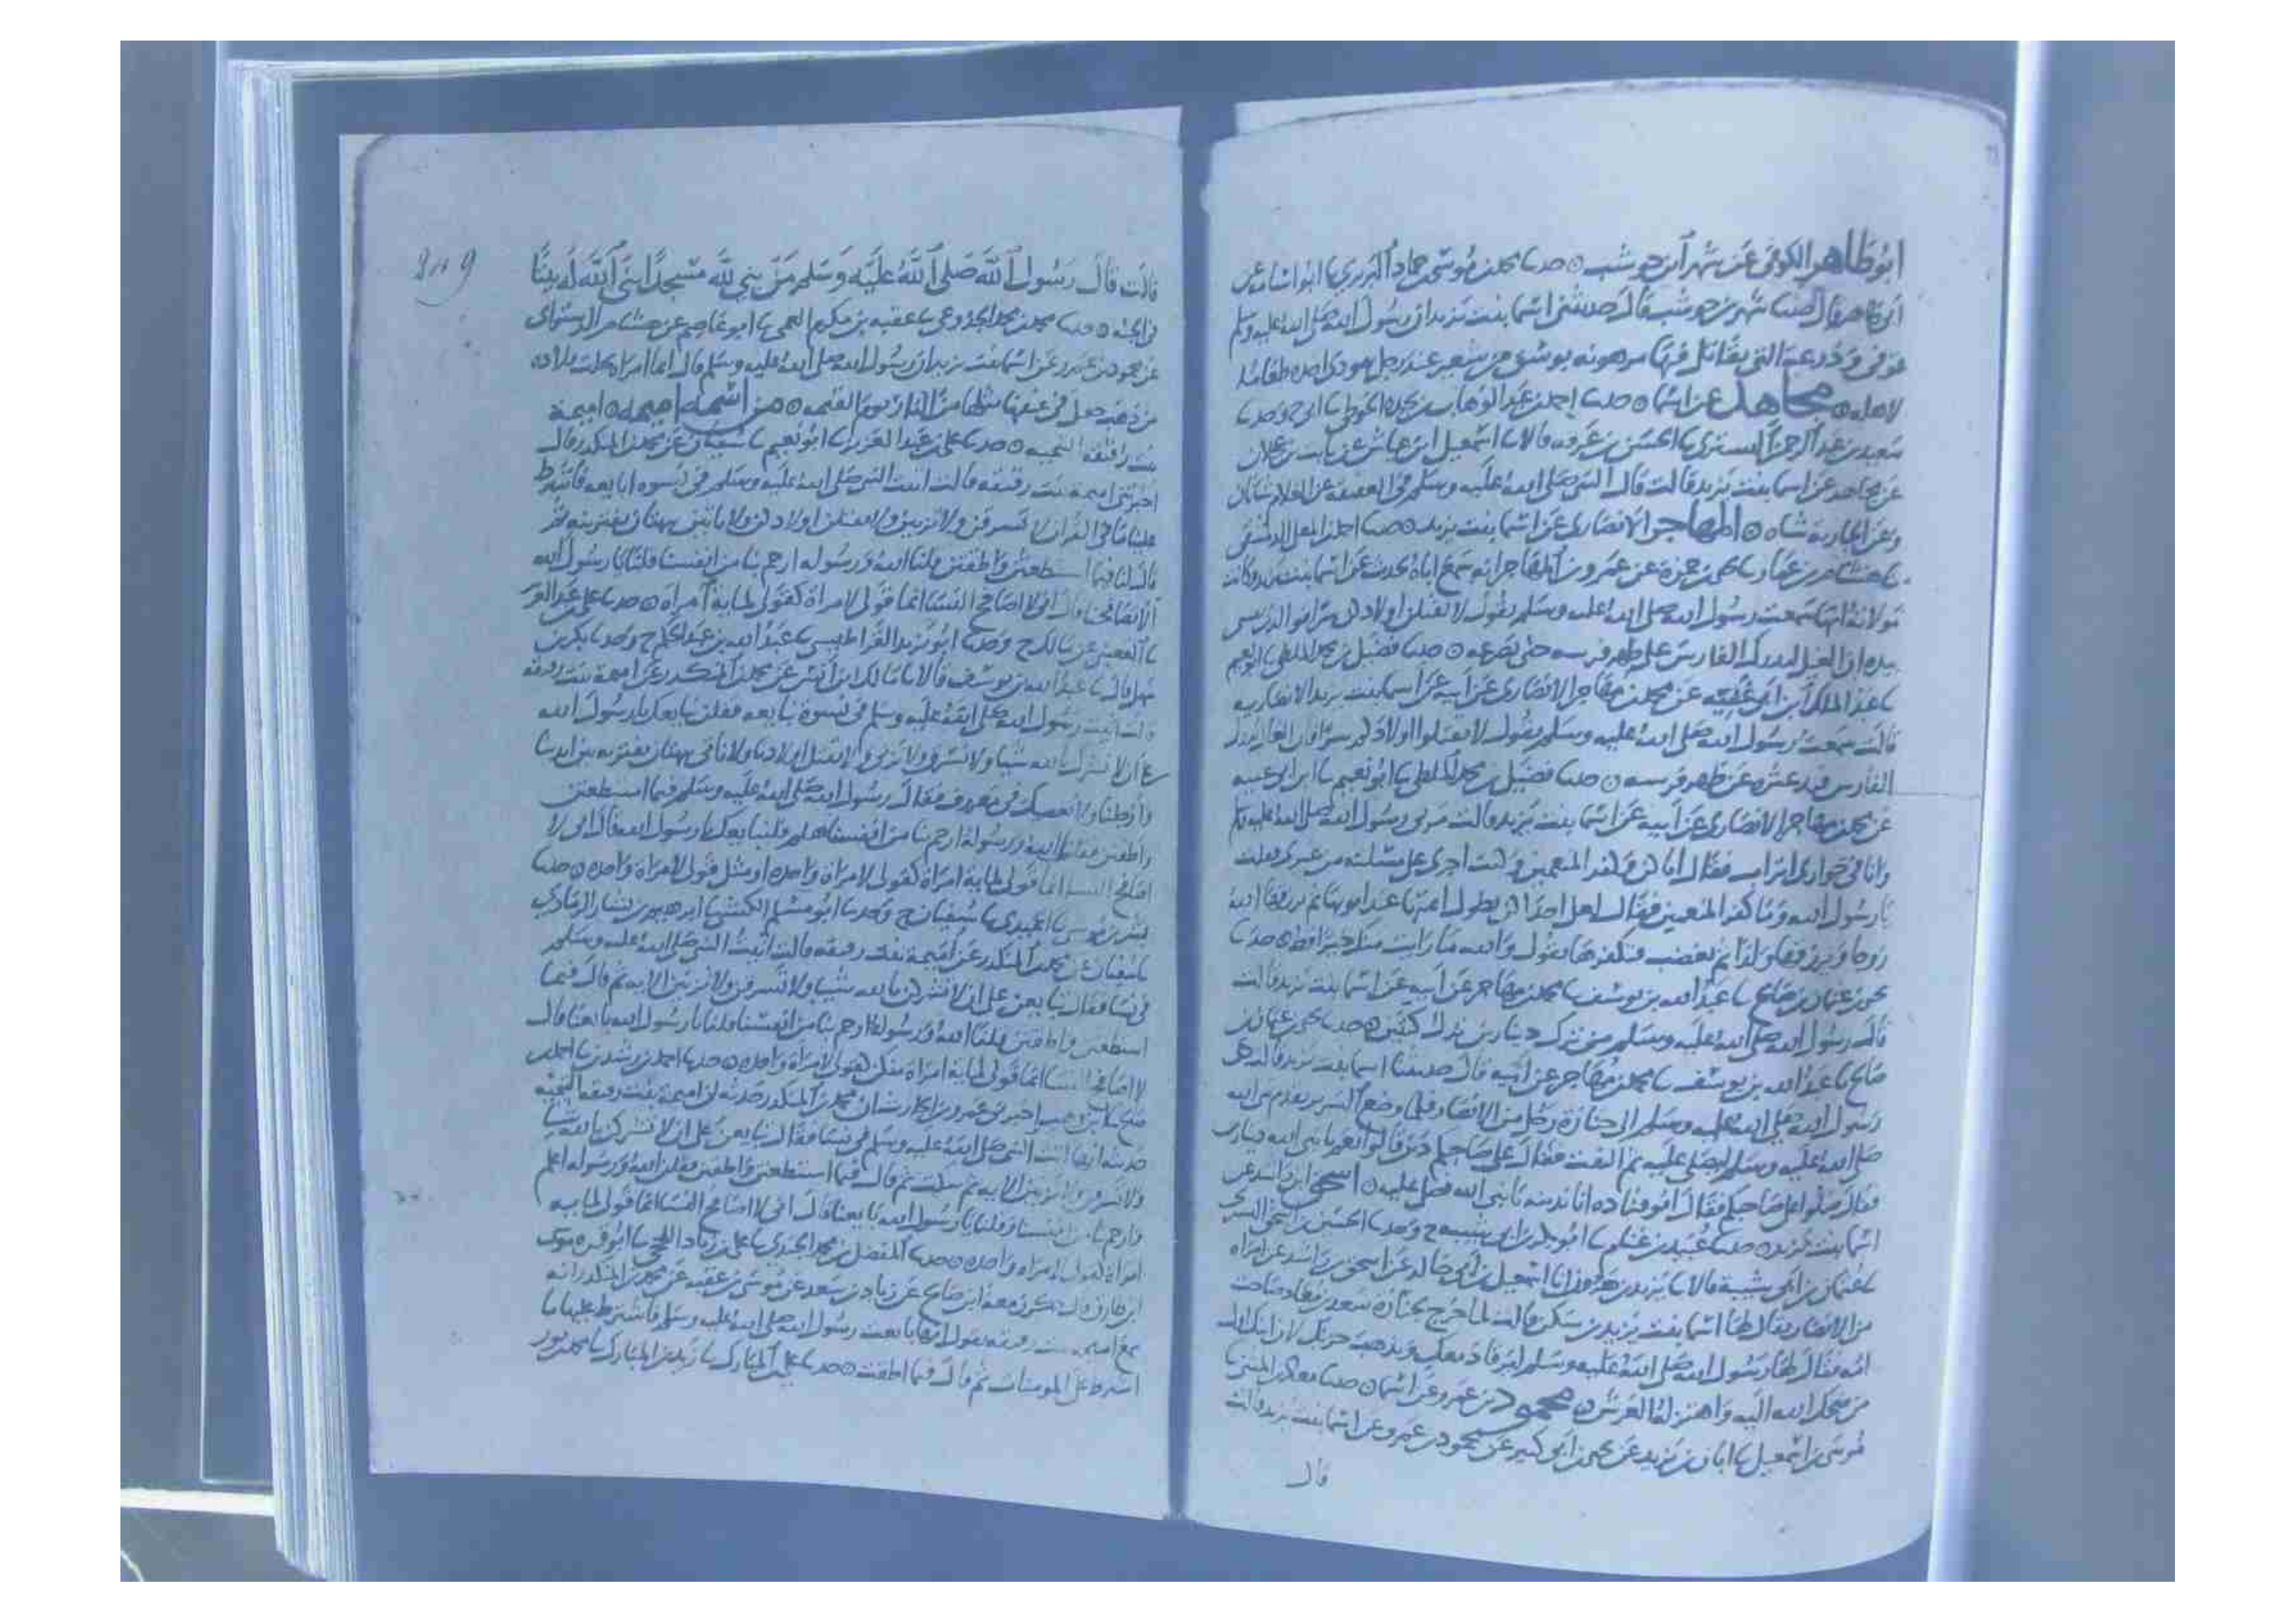 ابو طاهر الكوفي عن شهر ابن حوشب حدثنا محمد بن موسى حماد البربري ثنا ابو
قال حدثنا شهر بن حوشب قال حدثتني اسما بنت يزيد ان رسول الله صلى الله عليه وسلم
توفي ودرعه التي يقاتل فيها مرهونه بوسق من شعير عند رجل يهودي
لاهله مجاهد عن اسما حدثنا احمد بن عبد الوهاب بن نجده الحوطي ثنا ابي ح وحدثنا
سعيد بن عبد الرحمن التستري ثنا الحسن بن عرفه قالا ثنا اسمعيل ابن عياش عن ثابت بن عجلان
عن مجاهد عن اسما بنت يزيد قالت قال النبي صلى الله عليه وسلم في العقيقه عن الغلام شاتان
وعن الجاريه شاه المهاجر الانصاري عن اسما بنت يزيد حدثنا احمد بن المعلى الدمشقي
ثنا هشام بن عمار ثنا يحيى بن حمزه عن عمرو بن المهاجر انه سمع اباه يحدث عن اسما بنت يزيد وكانت
مولاته انها سمعت رسول الله صلى الله عليه وسلم يقول لا تقتلن اولادكن سرا فوالذي نفسي
بيده ان الغيل ليدرك الفارس على ظهر فرسه حتى يصرعه حدثنا فضيل بن محمد الملطي ثنا ابو نعيم
ثنا عبد الملك ابن ابي غنيه عن محمد بن مهاجر الانصاري عن ابيه عن اسما بنت يزيد الانصاريه
قالت سمعت رسول الله صلى الله عليه وسلم يقول لا تقتلوا اولادكم سرا فان
الفارس فيدعثره عن ظهر فرسه حدثنا فضيل بن محمد الملطي ثنا ابو نعيم ثنا ابن ابي غنيه
عن محمد بن مهاجر الانصاري عن ابيه عن اسما بنت يزيد قالت مر بي رسول الله صلى الله عليه وسلم
وانا في جواري اتراب فقال اياكن وكفر المنعمين وكنت اجرى على مسلته فقلت
يا رسول الله وما كفر المنعمين فقال لعل احداكن يطول ايمتها عند ابويها ثم يرزقها الله
زوجا ويرزقها ولدا ثم تغضب فتكفرها تقول والله ما رايت منك خيرا قط حدثنا
يحيى بن عثمان بن صالح ثنا عبد الله بن يوسف ثنا محمد بن مهاجر عن ابيه عن اسما بنت يزيد قالت
قال رسول الله صلى الله عليه وسلم من ترك دينارين ترك كيتين حدثنا يحيى بن عثمان بن
صالح ثنا عبد الله بن يوسف ثنا محمد بن مهاجر عن ابيه قال حدثتنا اسما بنت يزيد قالت دعي
رسول الله صلى الله عليه وسلم الى جنازة رجل من الانصار فلما وضع السرير تقدم نبي الله
صلى الله عليه وسلم ليصلي عليه ثم التفت فقال على صاحبكم دين قالوا نعم يا نبي الله ديناري
فقال صلوا على صاحبكم فقال ابو قتاده انا بدينه يا نبي الله فصلى عليه اسحق ابن راشد عن
اسما بنت يزيد حدثنا عبيد بن غنام ثنا ابو بكر بن ابي شيبه ح وحدثنا الحسين بن اسحق التستري
ثنا عثمان بن ابي شيبة قالا ثنا يزيد بن هرون انا اسمعيل بن ابي خالد عن اسحق بن راشد عن امراه
من الانصار يقال لها اسما بنت يزيد بن سكن قالت لما خرج بجنازة سعد بن معاذ صاحت
امه فقال لها رسول الله صلى الله عليه وسلم ليرقا دمعك ويذهب حزنك لان ابنك اول
من ضحك الله اليه واهتز له العرش محمود بن عمرو عن اسما حدثنا معاذ بن المثنى ثنا
موسى بن اسمعيل ثنا ابان بن يزيد عن يحيى بن ابي كثير عن محمود بن عمرو عن اسما بنت يزيد قالت
قال
قالت قال رسول الله صلى الله عليه وسلم من بني لله مسجدا بنى الله له بيتا
في الجنه حدثنا محمد بن محمد الجذوعي ثنا عقبه بن مكرم العمي ثنا ابو عاصم عن هشام الدستواي
عن محمود بن عمرو عن اسما بنت يزيد ان رسول الله صلى الله عليه وسلم قال ايما امراه تحلت قلاده
من ذهب جعل في عنقها مثلها من النار يوم القيمه من اسمه اميمه اميمة
بنت رقيقه التيميه حدثنا علي بن عبد العزيز ثنا ابو نعيم ثنا سفيان عن محمد بن المنكدر قال
اخبرتني اميمة بنت رقيقه قالت اتيت النبي صلى الله عليه وسلم في نسوه نبايعه فاشترط
علينا ما في القران لا تسرقن ولا تزنين ولا تقتلن اولادكن ولا تاتين ببهتان تفترينه ثم
قال لنا فيما استطعتن واطقتن قلنا الله ورسوله ارحم بنا من انفسنا قلنا يا رسول الله
الا تصافحنا قال اني لا اصافح النسا انما قولي لامراة كقولي لماية امراة حدثنا علي بن عبد العزيز
ثنا القعنبي عن مالك ح وحدثنا ابو يزيد القراطيسي ثنا عبد الله بن عبد الحكم ح وحدثنا بكر بن
سهل قال ثنا عبد الله بن يوسف قالا انا مالك بن انس عن محمد بن المنكدر عن اميمة بنت رقيقه
قالت اتيت رسول الله صلى الله عليه وسلم في نسوة نبايعه فقلن نبايعك يا رسول الله
على ان لا نشرك بالله شيا ولا نسرق ولا نزني ولا نقتل اولادنا ولا ناتي ببهتان نفتريه بين ايدينا
وارجلنا ولا نعصيك في معروف فقال رسول الله صلى الله عليه وسلم فيما استطعتن
واطقتن فقلنا الله ورسوله ارحم بنا من انفسنا هلم فلنبايعك يا رسول الله قال اني لا
اصافح النسا انما قولي لماية امراة كقولي لامراة واحده او مثل قولي لامراة واحده حدثنا
بشر بن موسى ثنا الحميدي ثنا سفيان ح وحدثنا ابو مسلم الكشي ثنا ابرهيم بن بشار الرمادي
ثنا سفيان ثنا محمد بن المنكدر عن اميمة بنت رقيقه قالت اتيت النبي صلى الله عليه وسلم
في نسا فقال نبايعن على ان لا تشركن بالله شيا ولا تسرقن ولا تزنين الايه ثم قال فيما
استطعتن واطقتن قلنا الله ورسوله ارحم بنا من انفسنا قلنا يا رسول الله بايعنا قال
لا اصافح النسا انما قولي لماية امراة مثل قولي لامراة واحده حدثنا احمد بن رشدين ثنا احمد بن
صالح ثنا ابن وهب اخبرني عمرو بن الحارث ان محمد بن المنكدر حدثه ان اميمة بنت رقيقه التيميه
حدثته انها اتت النبي صلى الله عليه وسلم في نسا فقال نبايعن على ان لا تشركن بالله شيا
ولا تسرقن ولا تزنين الايه ثم سكت ثم قال فيما استطعتن واطقتن فقلن الله ورسوله اعلم
وارحم بنا من انفسنا وقلنا يا رسول الله بايعنا قال اني لا اصافح النسا انما قولي لمايه
امراة كقولي لامراه واحده حدثنا المفضل بن محمد الجندي ثنا علي بن زياد اللحجي ثنا ابو قره موسى
ابن طارق قال ذكر زمعه ابن صالح عن زياد بن سعد عن موسى بن عقبه عن محمد بن المنكدر انه
سمع اميمه بنت رقيقه تقول انها بايعت رسول الله صلى الله عليه وسلم فاشترط عليها ما
اشترط على المومنات ثم قال فيما اطقتن حدثنا علي بن المبارك ثنا زيد بن المبارك ثنا محمد بن ثور